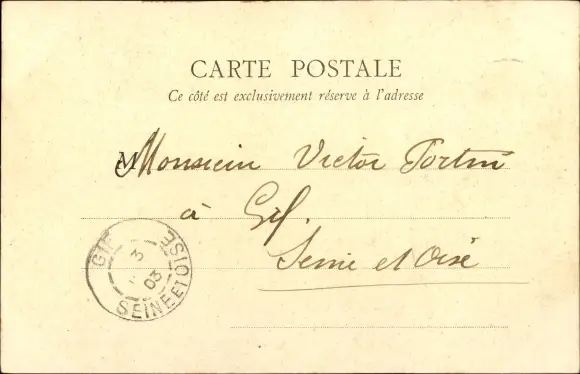 CARTE POSTALE
Ce côté est exclusivement réservé à l'adresse
Monsieur Victor
à Gif.
Seine et Oise
GIF
3
03
SEINE ET OISE